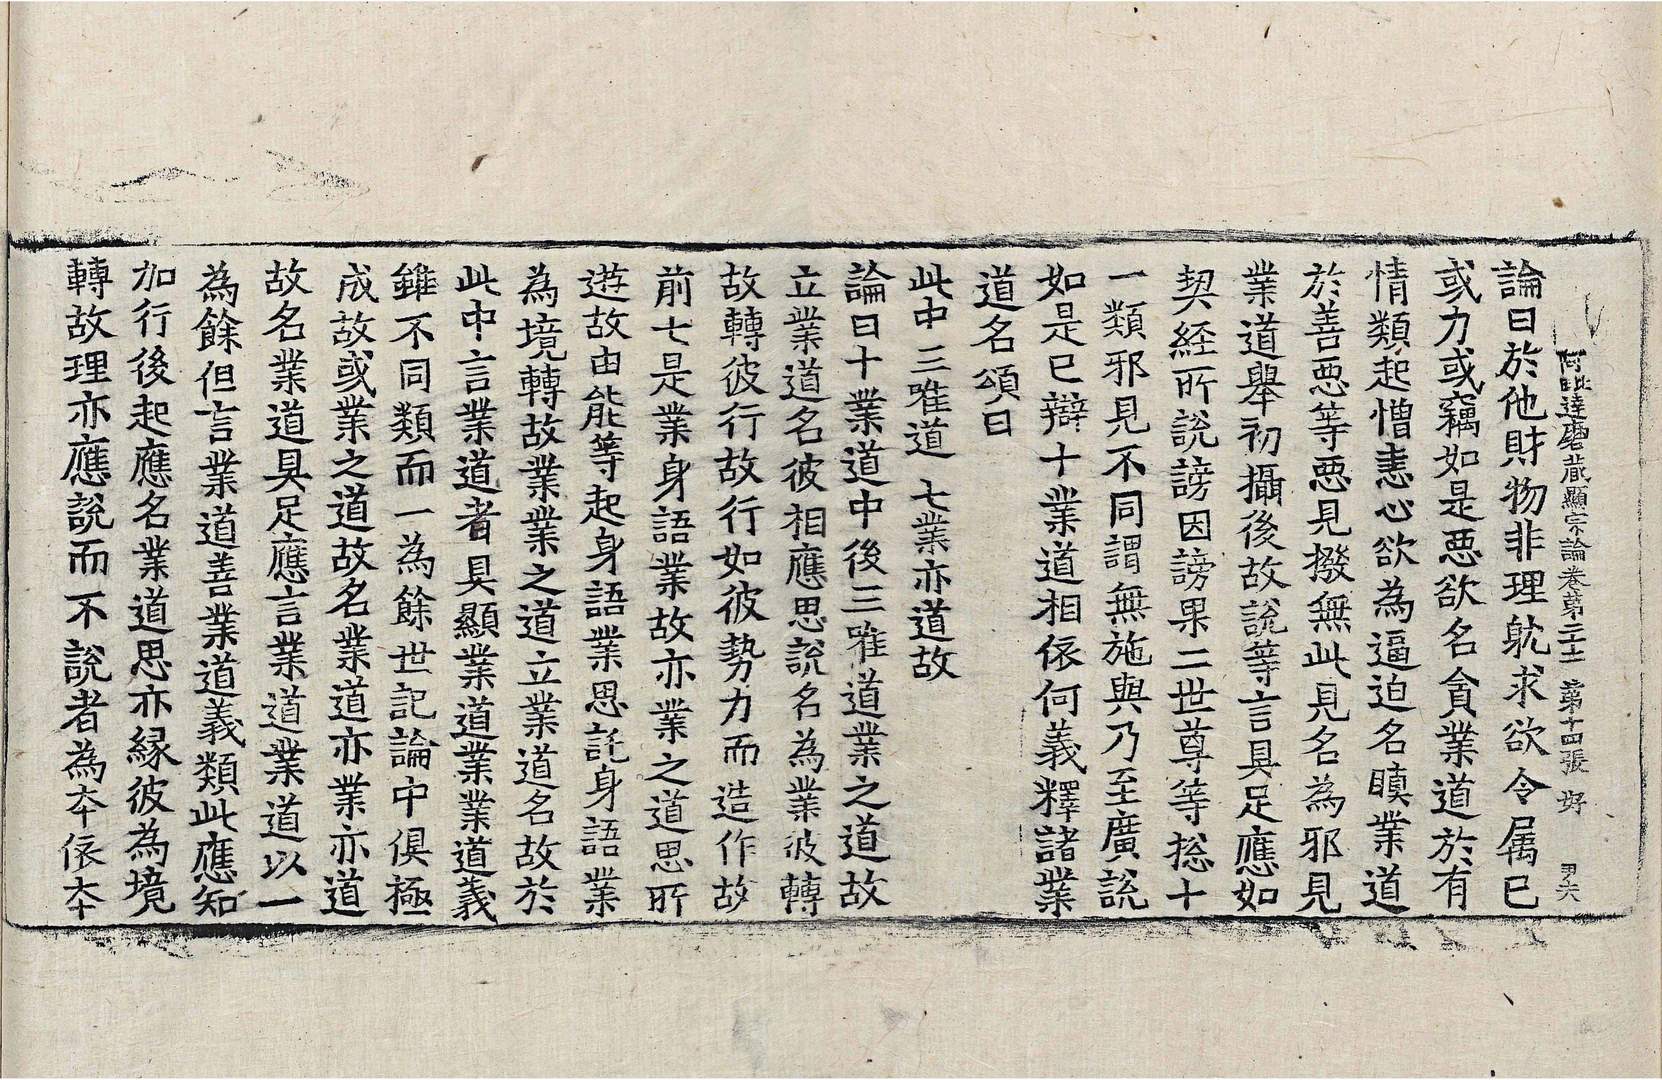 阿毗達磨藏顯宗論卷第二十二 第十四張 好
論曰於他財物非理躭求欲令属已
或力或竊如是惡欲名貪業道於有
情類起憎恚心欲為逼迫名瞋業道
於善惡等惡見撥無此見名為邪見
業道舉初攝後故說等言具足應如
契經所說謗因謗果二世尊等揔十
一類邪見不同謂無施與乃至廣說
如是已辯十業道相依何義釋諸業
道名頌曰
此中三唯道 七業亦道故
論曰十業道中後三唯道業之道故
立業道名彼相應思說名為業彼轉
故轉彼行故行如彼勢力而造作故
前七是業身語業故亦業之道思所
遊故由能等起身語業思託身語業
為境轉故業業之道立業道名故於
此中言業道者具顯業道業業道義
雖不同類而一為餘世記論中俱極
成故或業之道故名業道亦業亦道
故名業道具足應言業道業道以一
為餘但言業道善業道義類此應知
加行後起應名業道思亦緣彼為境
轉故理亦應說而不說者為夲依夲